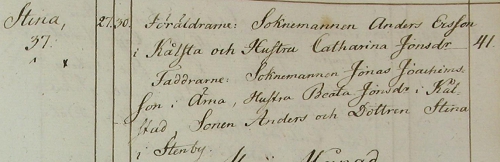 Stina, 27. 30. Föräldrarne: Soknemannen Anders Ersson
37. i Kålsta och Hustru Catharina Jonsdr 41.
Faddrarne: Soknemannen Jonas Joachims-
son i Ärna, Hustru Beata Jönsdr i Kål-
stad Sonen Anders och Dottren Stina
i Stenby.